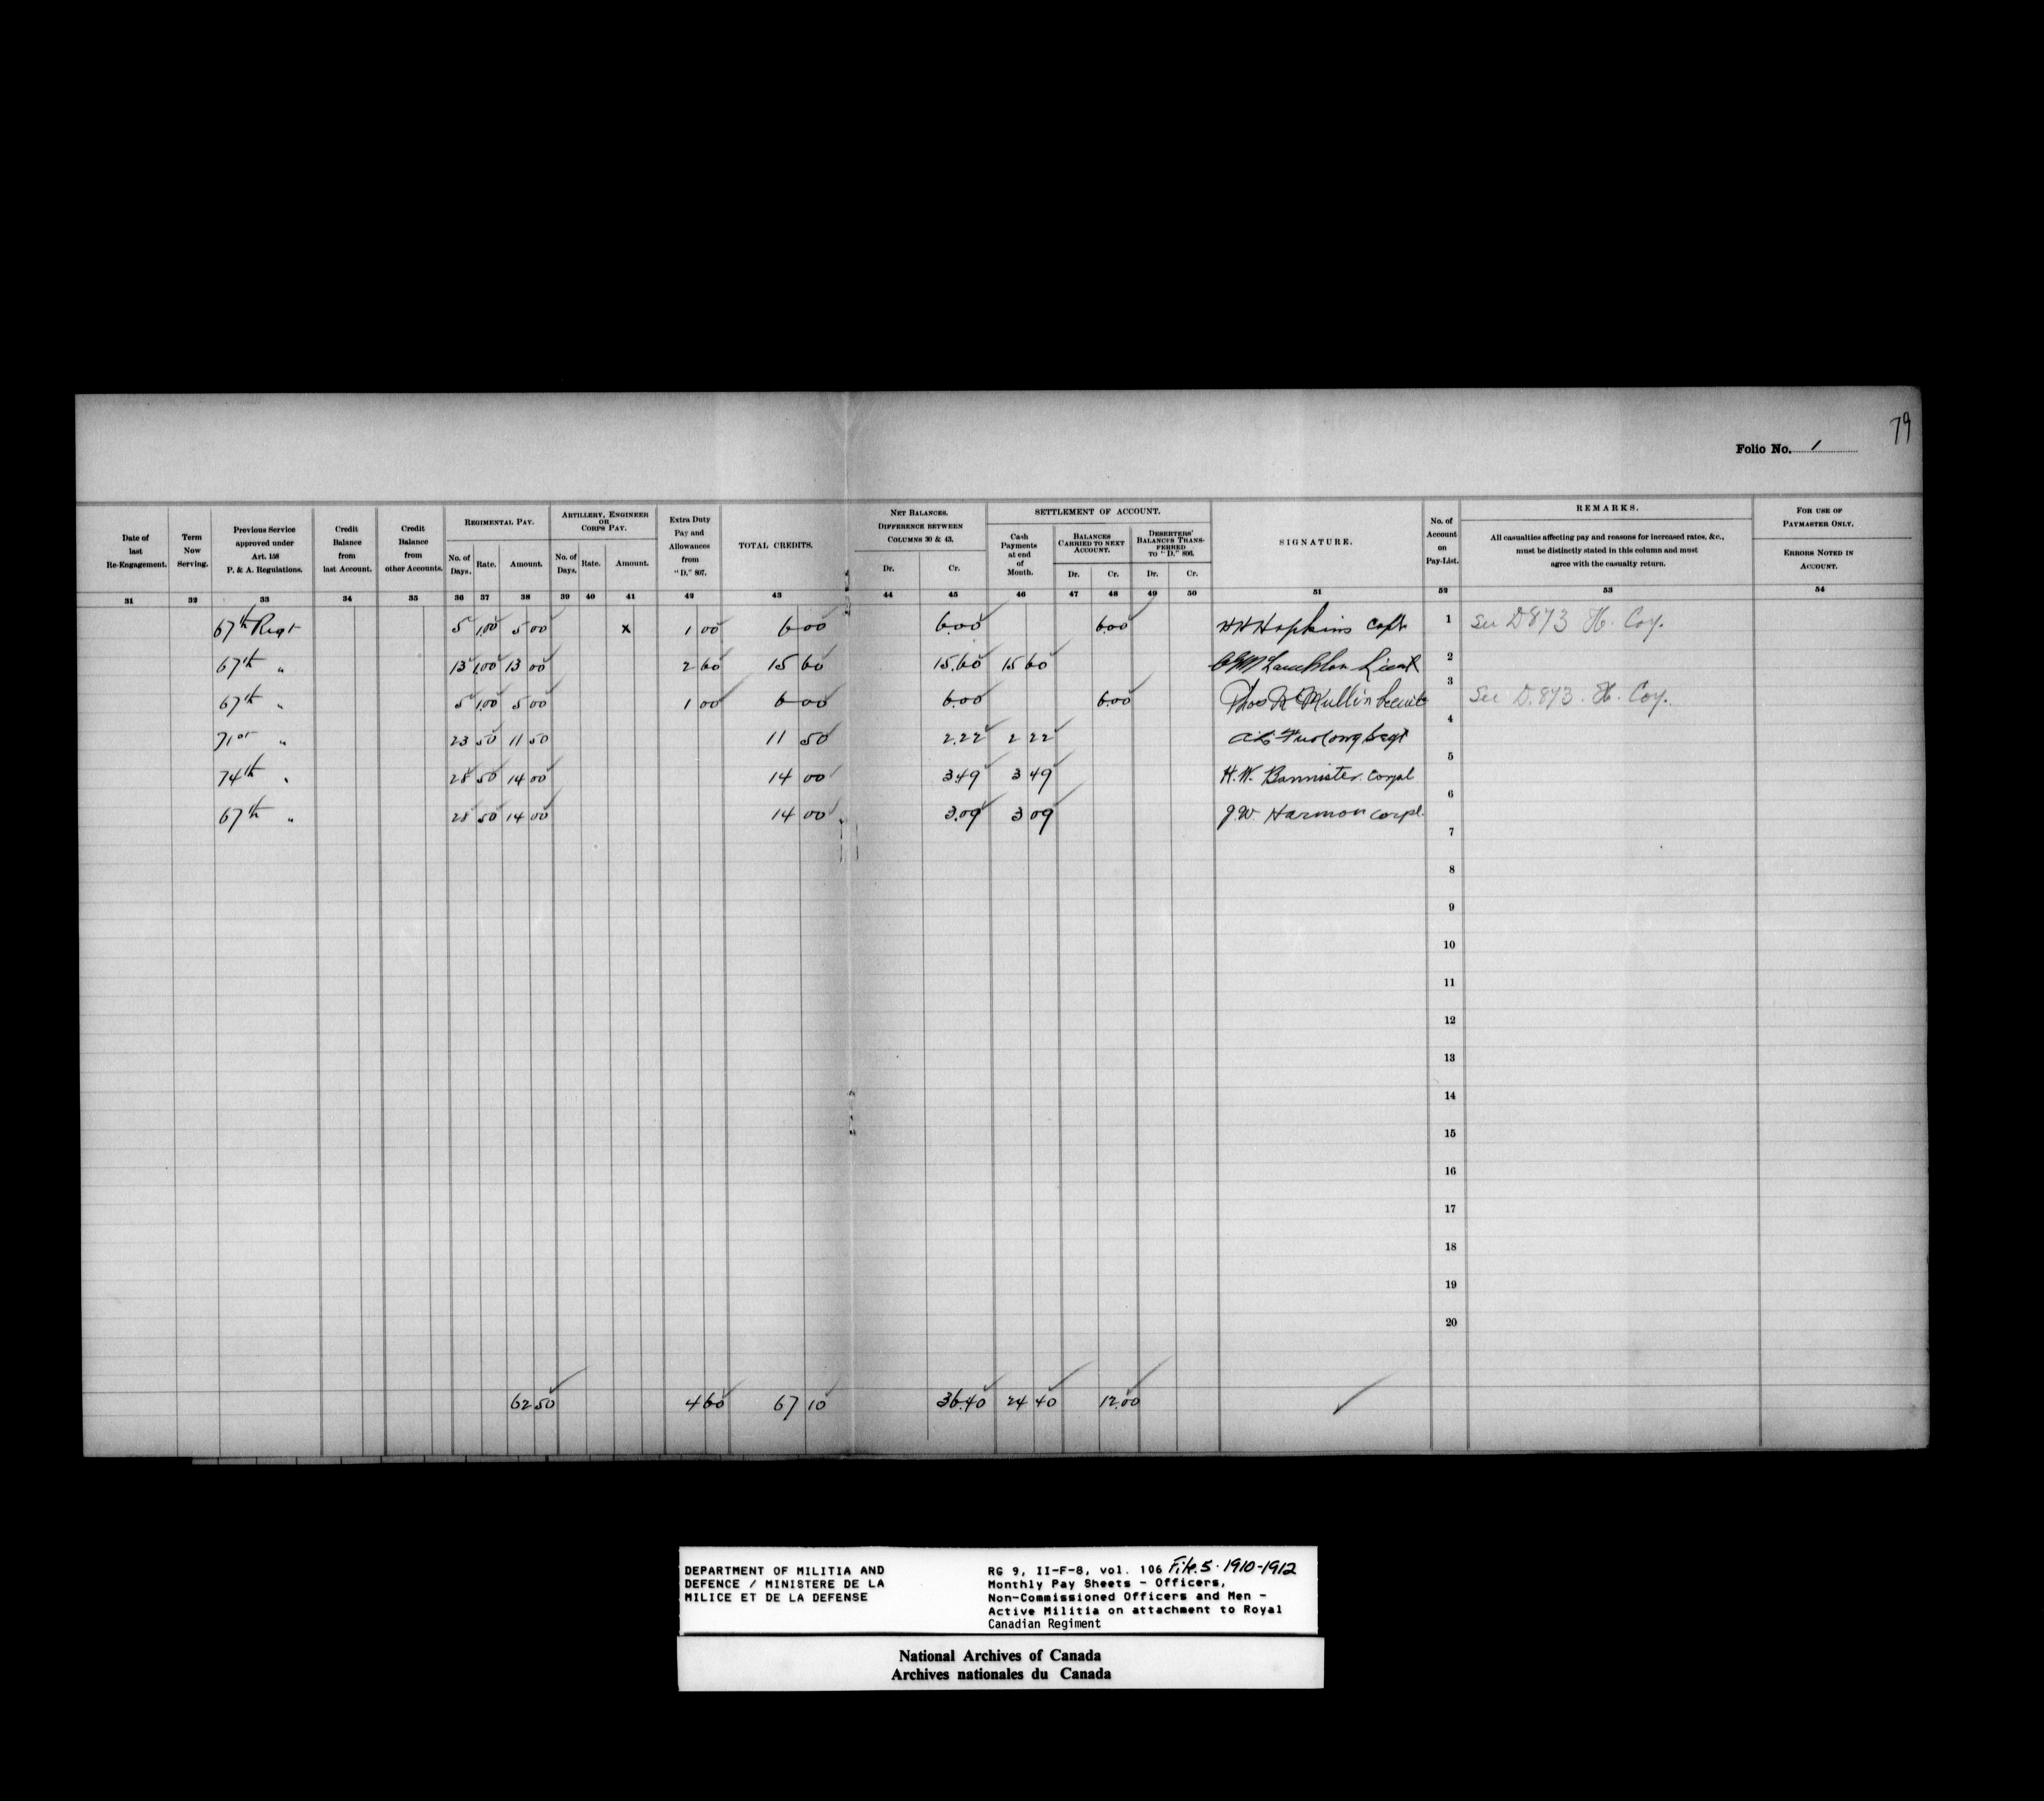 79
Folio No. 1
Date of last Re-Engagement.
Term Now Serving.
Previous Service approved under Art. 158 P. & A. Regulations.
Credit Balance from last Account.
Credit Balance from other Accounts.
REGIMENTAL PAY.
No. of Days. Rate. Amount.
ARTILLERY, ENGINEER OR CORPS PAY.
No. of Days. Rate. Amount.
Extra Duty Pay and Allowances from "D." 807.
TOTAL CREDITS.
NET BALANCES. DIFFERENCE BETWEEN COLUMNS 30 & 43.
Dr. Cr.
SETTLEMENT OF ACCOUNT.
Cash Payments at end of Month.
BALANCES CARRIED TO NEXT ACCOUNT.
Dr. Cr.
DESERTERS' BALANCES TRANSFERRED TO "D." 806.
Dr. Cr.
SIGNATURE.
No. of Account on Pay-List.
REMARKS.
All casualties affecting pay and reasons for increased rates, &c., must be distinctly stated in this column and must agree with the casualty return.
FOR USE OF PAYMASTER ONLY.
ERRORS NOTED IN ACCOUNT.
31 32 33 34 35 36 37 38 39 40 41 42 43 44 45 46 47 48 49 50 51 52 53 54
67th Regt 5 1.00 5 00 x 1 00 6 00 6.00 6.00 Hopkins Capt 1 See D873 H. Coy.
67th " 13 1.00 13 00 2 60 15 60 15.60 15 60 Lieut 2
67th " 5 1.00 5 00 1 00 6 00 6.00 6.00 Mullin Lieut 3 See D.873. H. Coy.
71st " 23 50 11 50 11 50 2.22 2 22 Furlong Sergt 4
74th " 28 50 14 00 14 00 3.49 3 49 H. W. Bannister. Corpl 5
67th " 28 50 14 00 14 00 3.09 3 09 J. W. Harmon Corpl. 6
7
8
9
10
11
12
13
14
15
16
17
18
19
20
62 50 4 60 67 10 36.40 24 40 12.00
DEPARTMENT OF MILITIA AND
DEFENCE / MINISTERE DE LA
MILICE ET DE LA DEFENSE
RG 9, II-F-8, vol. 106 File 5. 1910-1912
Monthly Pay Sheets - Officers,
Non-Commissioned Officers and Men -
Active Militia on attachment to Royal
Canadian Regiment
National Archives of Canada
Archives nationales du Canada